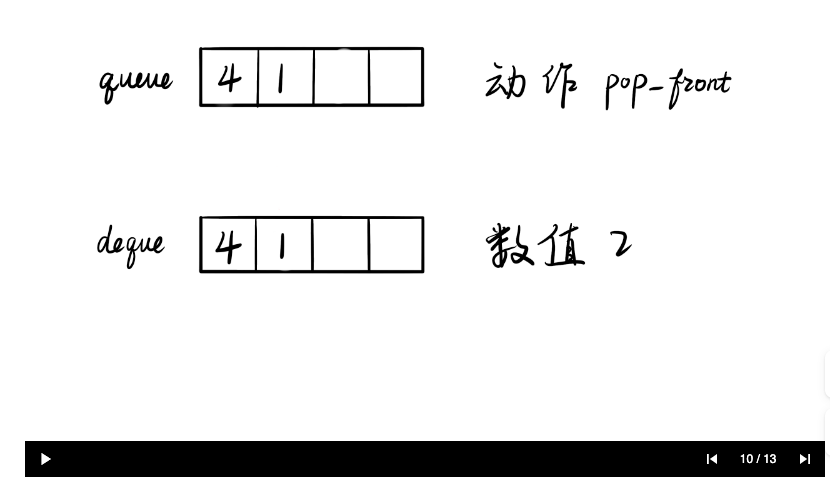 queue 4 1 动作 pop_front
deque 4 1 数值 2
10 / 13